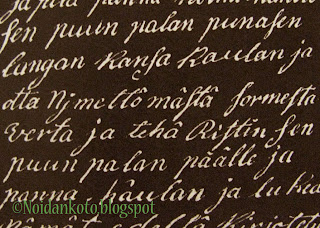 sen puun palan punasen
lungan kansa kaulan ja
ota Nimettömästä sormesta
Verta ja tehä Ristin sen
puun palan päälle ja
panna käulan ja lukia
©Noidankoto.blogspot